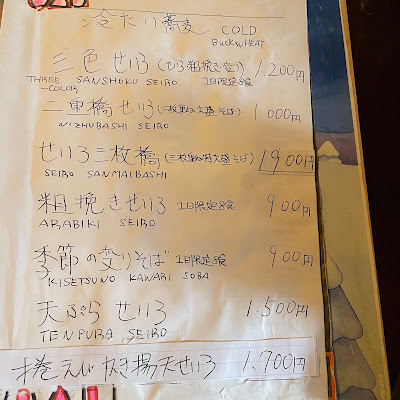 冷たい蕎麦 COLD
BUCKWHEAT
三色せいろ 1.200円
THREE SANSHOKU SEIRO 1日限定8食
-COLOR
二重橋せいろ 1.000円
NIZHUBASHI SEIRO
せいろ三枚橋 1900円
SEIRO SANMAIBASHI
粗挽きせいろ 1日限定8食 900円
ARABIKI SEIRO
季節の変りそば 1日限定8食 900円
KISETSUNO KAWARI SOBA
天ぷら せいろ 1.500円
TENPURA SEIRO
えび 揚天せいろ 1.700円